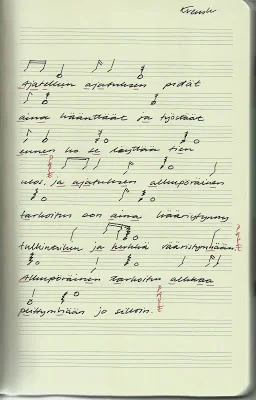 Ajatellun ajatuksen pidät
aina kääntäät ja työstäät
ennen ko se löyttää tien
ulos, ja ajatuksen alkuperäinen
tarkoitus oon aina vääristynny
tulkinthoin ja herkkä vääristymhään
Alkuperäinen tarkoitus alkkaa
pettymhään jo silloin.